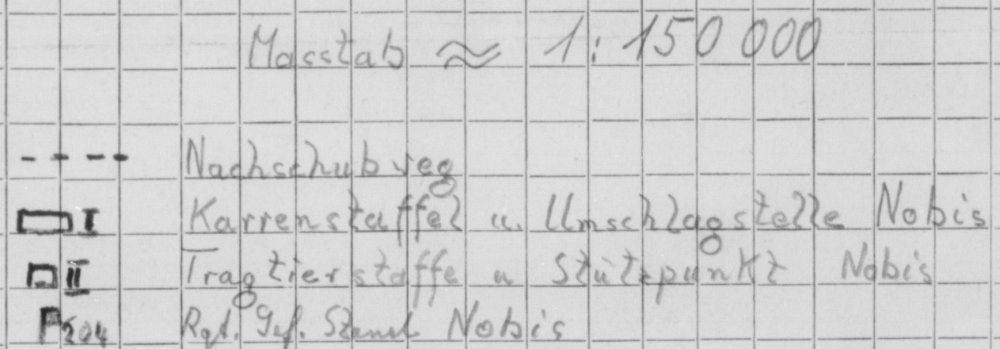 Masstab ≈ 1:150 000
Nachschubweg
I Karrenstaffel u. Umschlagstelle Nobis
II Tragtierstaffe u Stützpunkt Nobis
204 Rgt. Gef. Stand Nobis